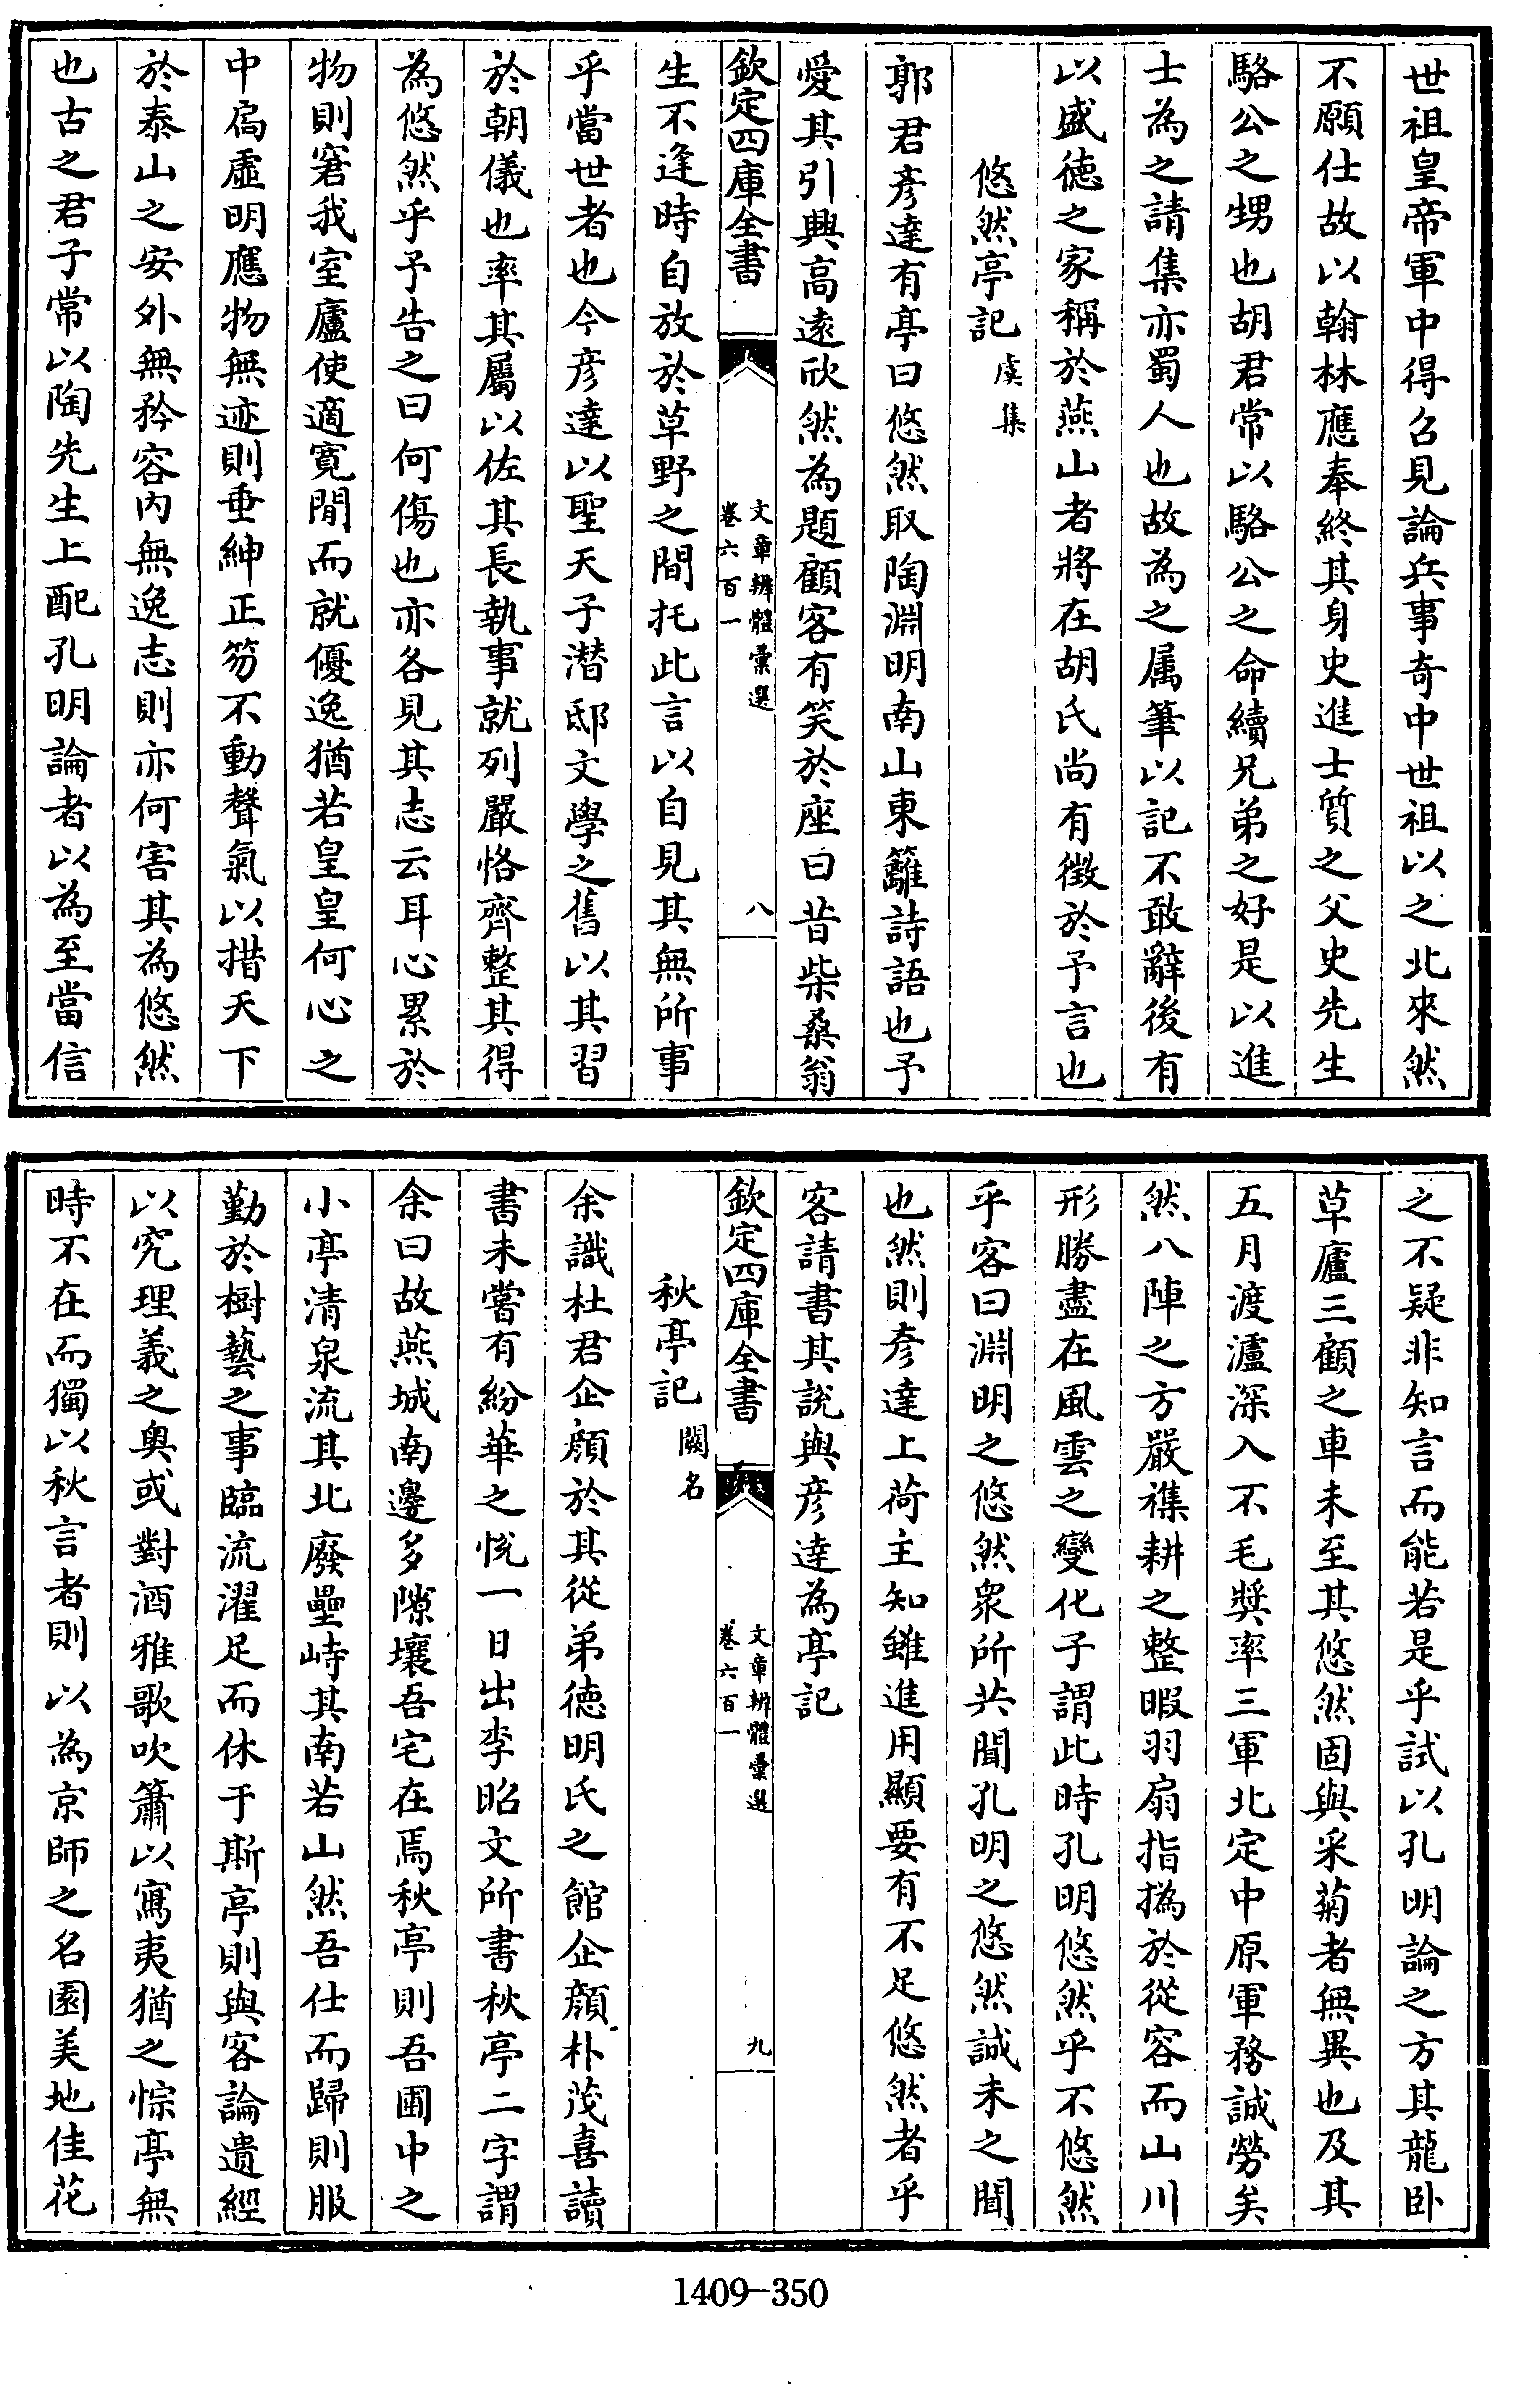 世祖皇帝軍中得召見論兵事奇中世祖以之北來然
不願仕故以翰林應奉終其身史進士質之父史先生
駱公之甥也胡君常以駱公之命續兄弟之好是以進
士為之請集亦蜀人也故為之属筆以記不敢辭後有
以盛徳之家稱於燕山者將在胡氏尚有徴於予言也
悠然亭記 虞集
郭君彥達有亭曰悠然取陶淵明南山東籬詩語也予
愛其引興高逺欣然為題顧客有笑於座曰昔柴桑翁
欽定四庫全書 文章辨體彚選 卷六百一 八
生不逢時自放於草野之間托此言以自見其無所事
乎當世者也今彥達以聖天子潜邸文學之舊以其習
於朝儀也率其屬以佐其長執事就列嚴恪齊整其得
為悠然乎予告之曰何傷也亦各見其志云耳心累於
物則窘我室廬使適寛閒而就優逸猶若皇皇何心之
中扃虛明應物無迹則垂紳正笏不動聲氣以措天下
於泰山之安外無矜容内無逸志則亦何害其為悠然
也古之君子常以陶先生上配孔明論者以為至當信
之不疑非知言而能若是乎試以孔明論之方其龍卧
草廬三顧之車未至其悠然固與采菊者無異也及其
五月渡瀘深入不毛奬率三軍北定中原軍務誠勞矣
然八陣之方嚴襍耕之整暇羽扇指撝於從容而山川
形勝盡在風雲之變化子謂此時孔明悠然乎不悠然
乎客曰淵明之悠然衆所共聞孔明之悠然誠未之聞
也然則彥達上荷主知雖進用顯要有不足悠然者乎
客請書其說與彥達為亭記
欽定四庫全書 文章辨體彚選 卷六百一 九
秋亭記 闕名
余識杜君企顔於其從弟徳明氏之館企顔朴茂喜讀
書未嘗有紛華之悅一日出李昭文所書秋亭二字謂
余曰故燕城南邊多隙壤吾宅在焉秋亭則吾圃中之
小亭清泉流其北廢壘峙其南若山然吾仕而歸則服
勤於樹藝之事臨流濯足而休于斯亭則與客論遺經
以究理義之奥或對酒雅歌吹簫以寫夷猶之悰亭無
時不在而獨以秋言者則以為京師之名園美地佳花
1409-350